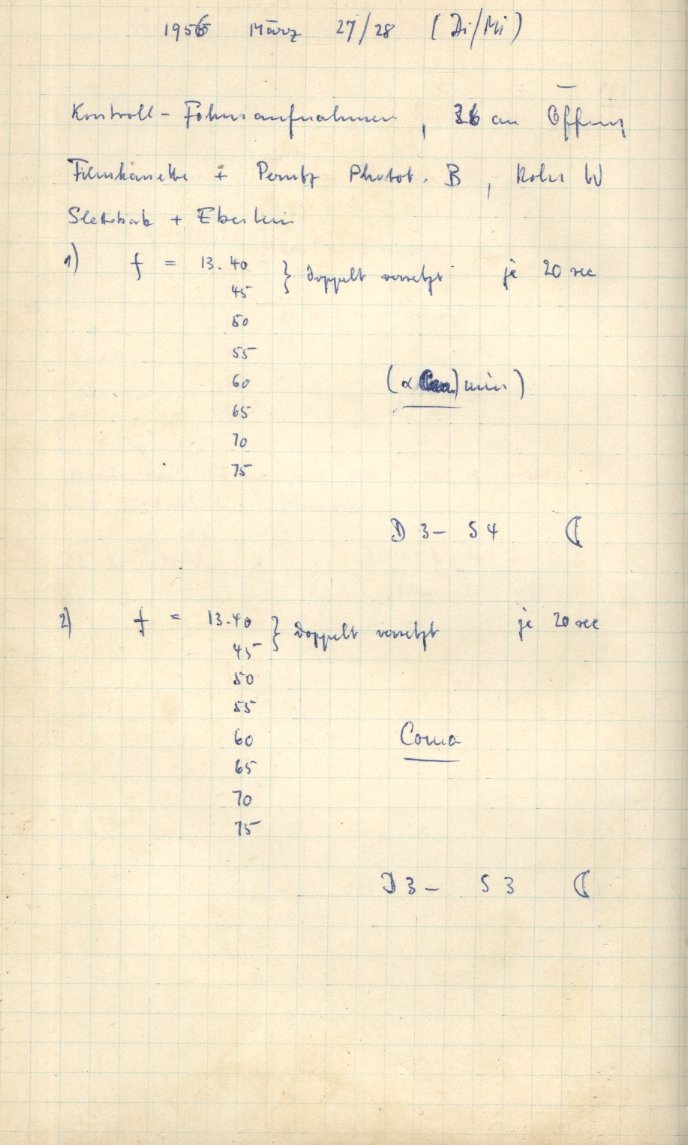 1956 März 27/28 (Di/Mi)
Kontroll-Fokusaufnahmen, 36 cm Öffnung
Filmkassette + Perutz Photot. B, Rohr W
Slettebak + Eberlein
1) f = 13.40 } doppelt versetzt je 20 sec
45
50
55
60 (α min)
65
70
75
D 3 - S 4 ☾
2) f = 13.40 } doppelt versetzt je 20 sec
45
50
55
60 Coma
65
70
75
D 3 - S 3 ☾